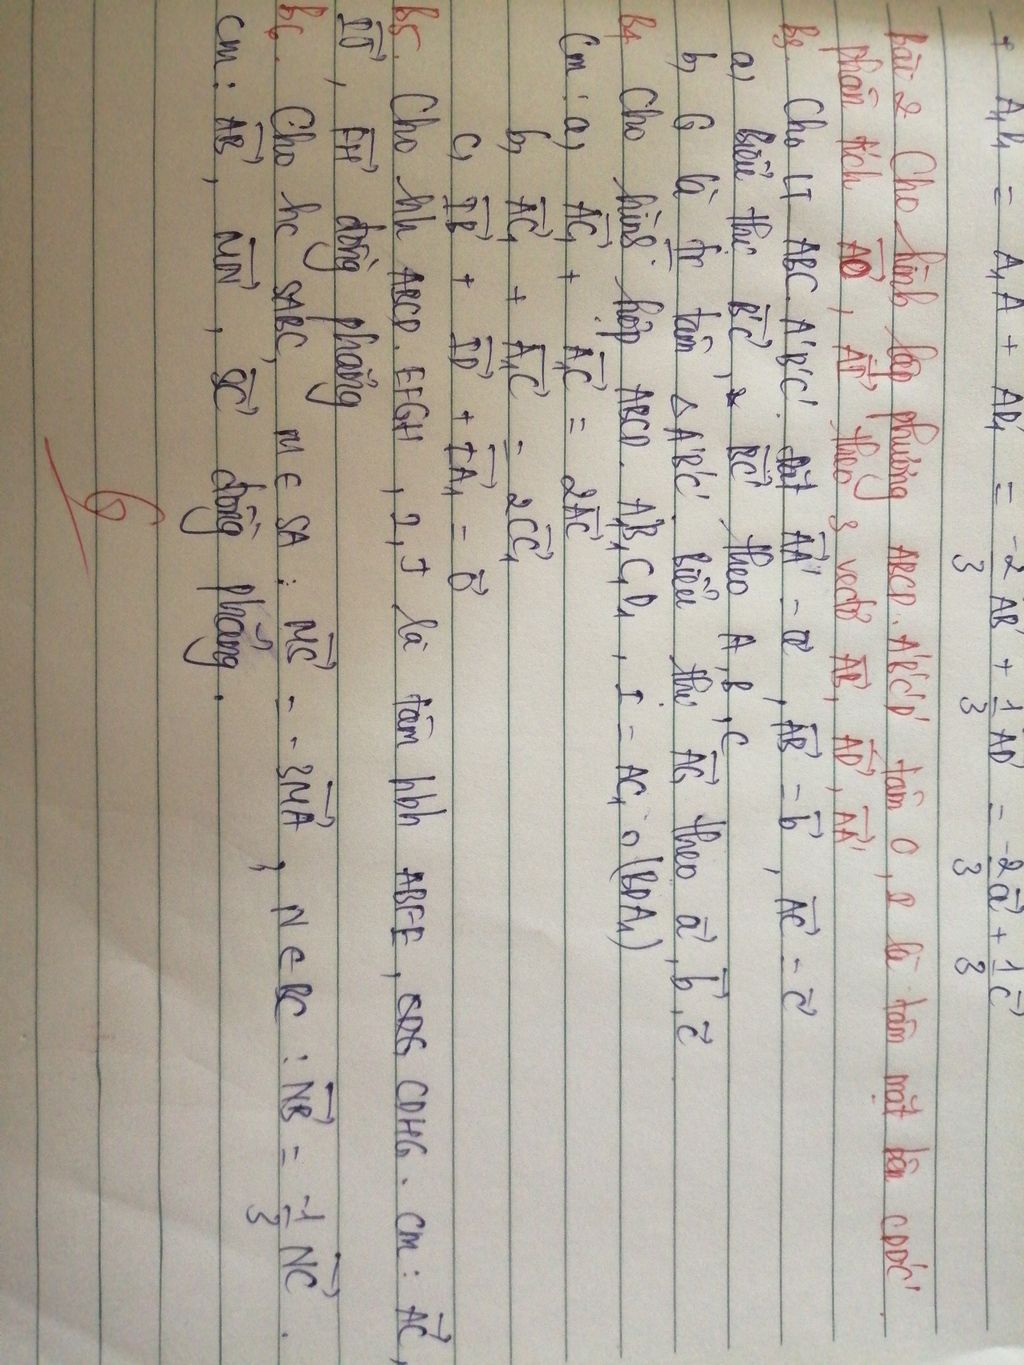 + A₁B₁ = A₁A + AB₁ = -2/3 AB + 1/3 AD = -2/3 a⃗ + 1/3 c⃗
Bài 2 Cho hình lập phương ABCD.A'B'C'D' tâm O, I là tâm mặt bên CDD'C'.
phân tích AO⃗, AI⃗ theo 3 vectơ AB⃗, AD⃗, AA'⃗
B3. Cho LT ABC.A'B'C'. đặt AA'⃗ = a⃗, AB⃗ = b⃗, AC⃗ = c⃗
a, biểu thị B'C⃗, BC'⃗ theo A, B, C
b, G là tr tâm △A'B'C'. biểu thị AG⃗ theo a⃗, b⃗, c⃗
B4 Cho hình hộp ABCD.A₁B₁C₁D₁, I = AC₁ ∩ (BDA₁)
Cm: a, AC₁⃗ + A₁C⃗ = 2AC⃗
b, AC₁⃗ + A₁C⃗ = 2CC₁⃗
c, IB⃗ + ID⃗ + IA₁⃗ = 0⃗
B5. Cho hh ABCD.EFGH, I, J là tâm hbh ABFE, CDHG. Cm: AC⃗,
IJ⃗, FH⃗ đồng phẳng
B6. Cho hc SABC, M ∈ SA: MS⃗ = -3MA⃗, N ∈ BC: NB⃗ = -1/3 NC⃗.
Cm: AB⃗, MN⃗, SC⃗ đồng phẳng.